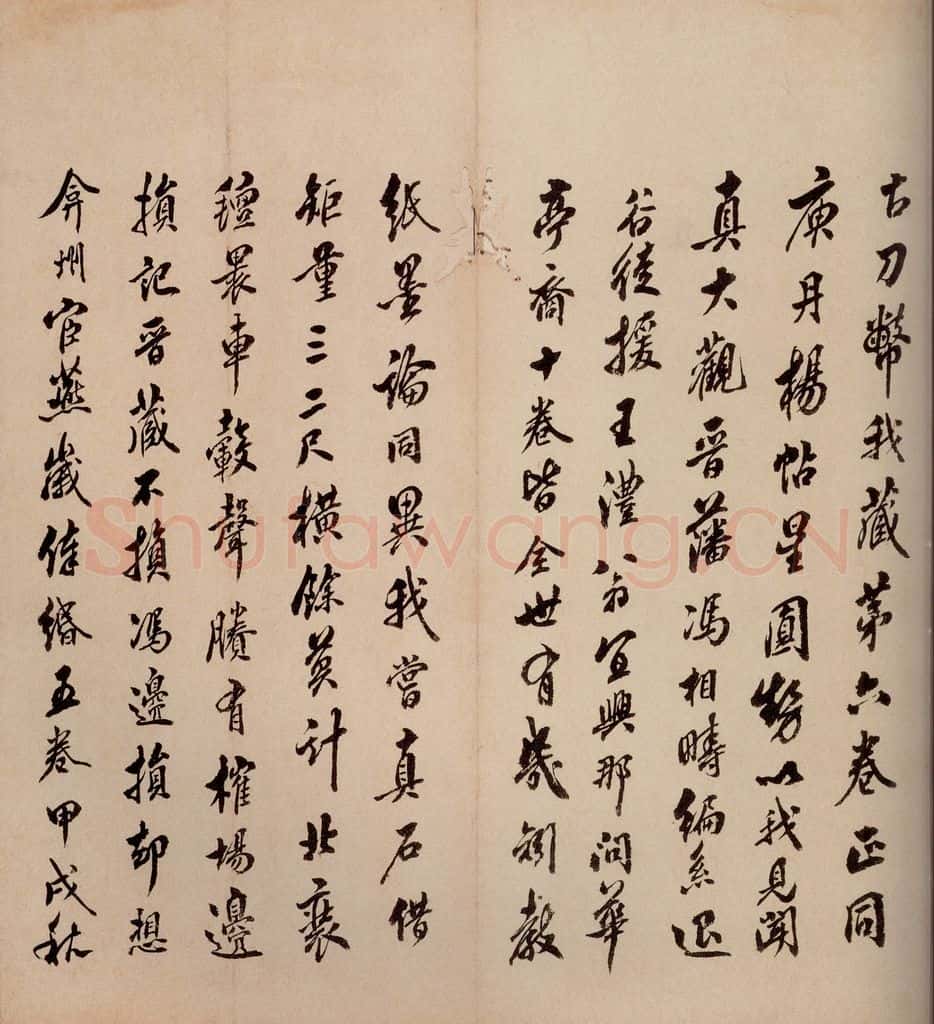 古刀幣我藏第六卷正同
庚丹楊帖星圓勢以我見聞
真大觀晉藩馮相疇編系退
谷徒援王澧宜興那問華
亭齋十卷皆全世有幾教
紙墨論同異我嘗真石借
鉅量三二尺橫餘莫計北
車轂聲賸有榷場邊
損記晉藏不損馮邊損却想
弇州宦燕歲俸緡五卷甲戌秋
Shufawang.CN